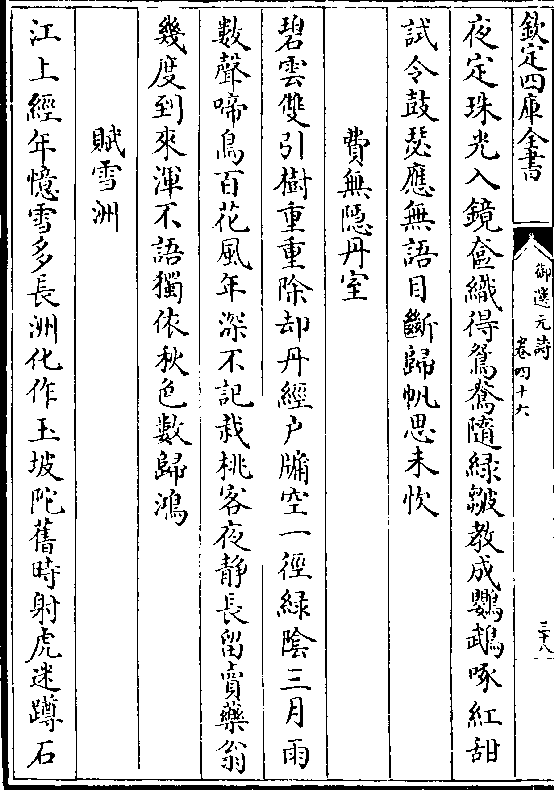 欽定四庫全書
御選元詩
卷四十六
三十八
夜定珠光入鏡奩織得鴛鴦隨綠皺教成鸚鵡啄紅甜
試令鼓瑟應無語目斷歸帆思未忺
費無隱丹室
碧雲雙引樹重重除却丹經户牖空一徑綠陰三月雨
數聲啼鳥百花風年深不記栽桃客夜静長留賣藥翁
幾度到來渾不語獨依秋色數歸鴻
賦雪洲
江上經年憶雪多長洲化作玉坡陀舊時射虎迷蹲石